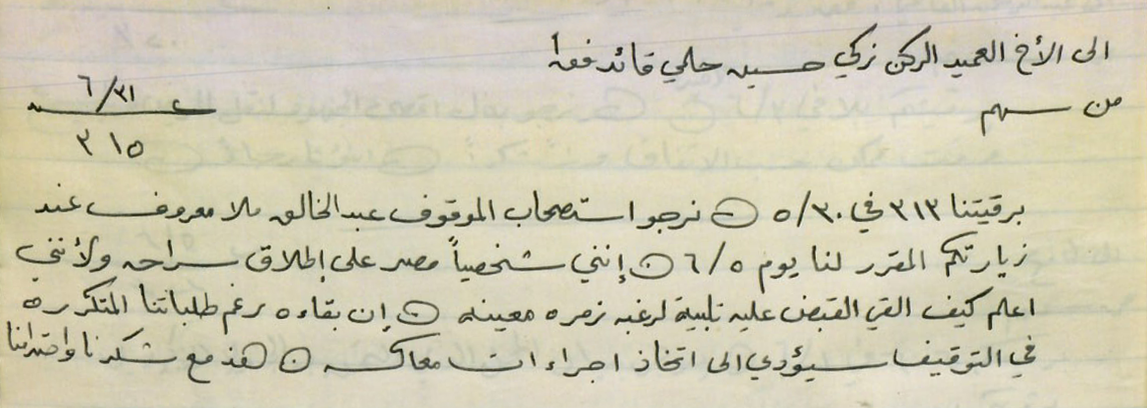 الى الأخ العميد الركن زكي حسين حلمي قائد فق١
من سهم
٦/٣١
٣١٥
برقيتنا ٣١٣ في ٥/٣٠ ن نرجو استصحاب الموقوف عبدالخالق ملا معروف عند
زيارتكم المقرر لنا يوم ٦/٥ ن إنني شخصياً مصر على إطلاق سراحه ولأنني
اعلم كيف القي القبض عليه تلبية لرغبه زمره معينه ن إن بقاءه برغم طلباتنا المتكرره
في التوقيف سيؤدي الى اتخاذ اجراءات معاكسه ن هذ مع شكرنا واحترامنا